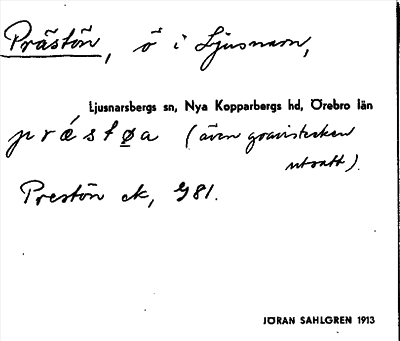 Prästön, ö i Ljusnarn,
Ljusnarsbergs sn, Nya Kopparbergs hd, Örebro län
prǽstøa (även gravistecken
utsatt).
Prestön ek, G81.
JÖRAN SAHLGREN 1913